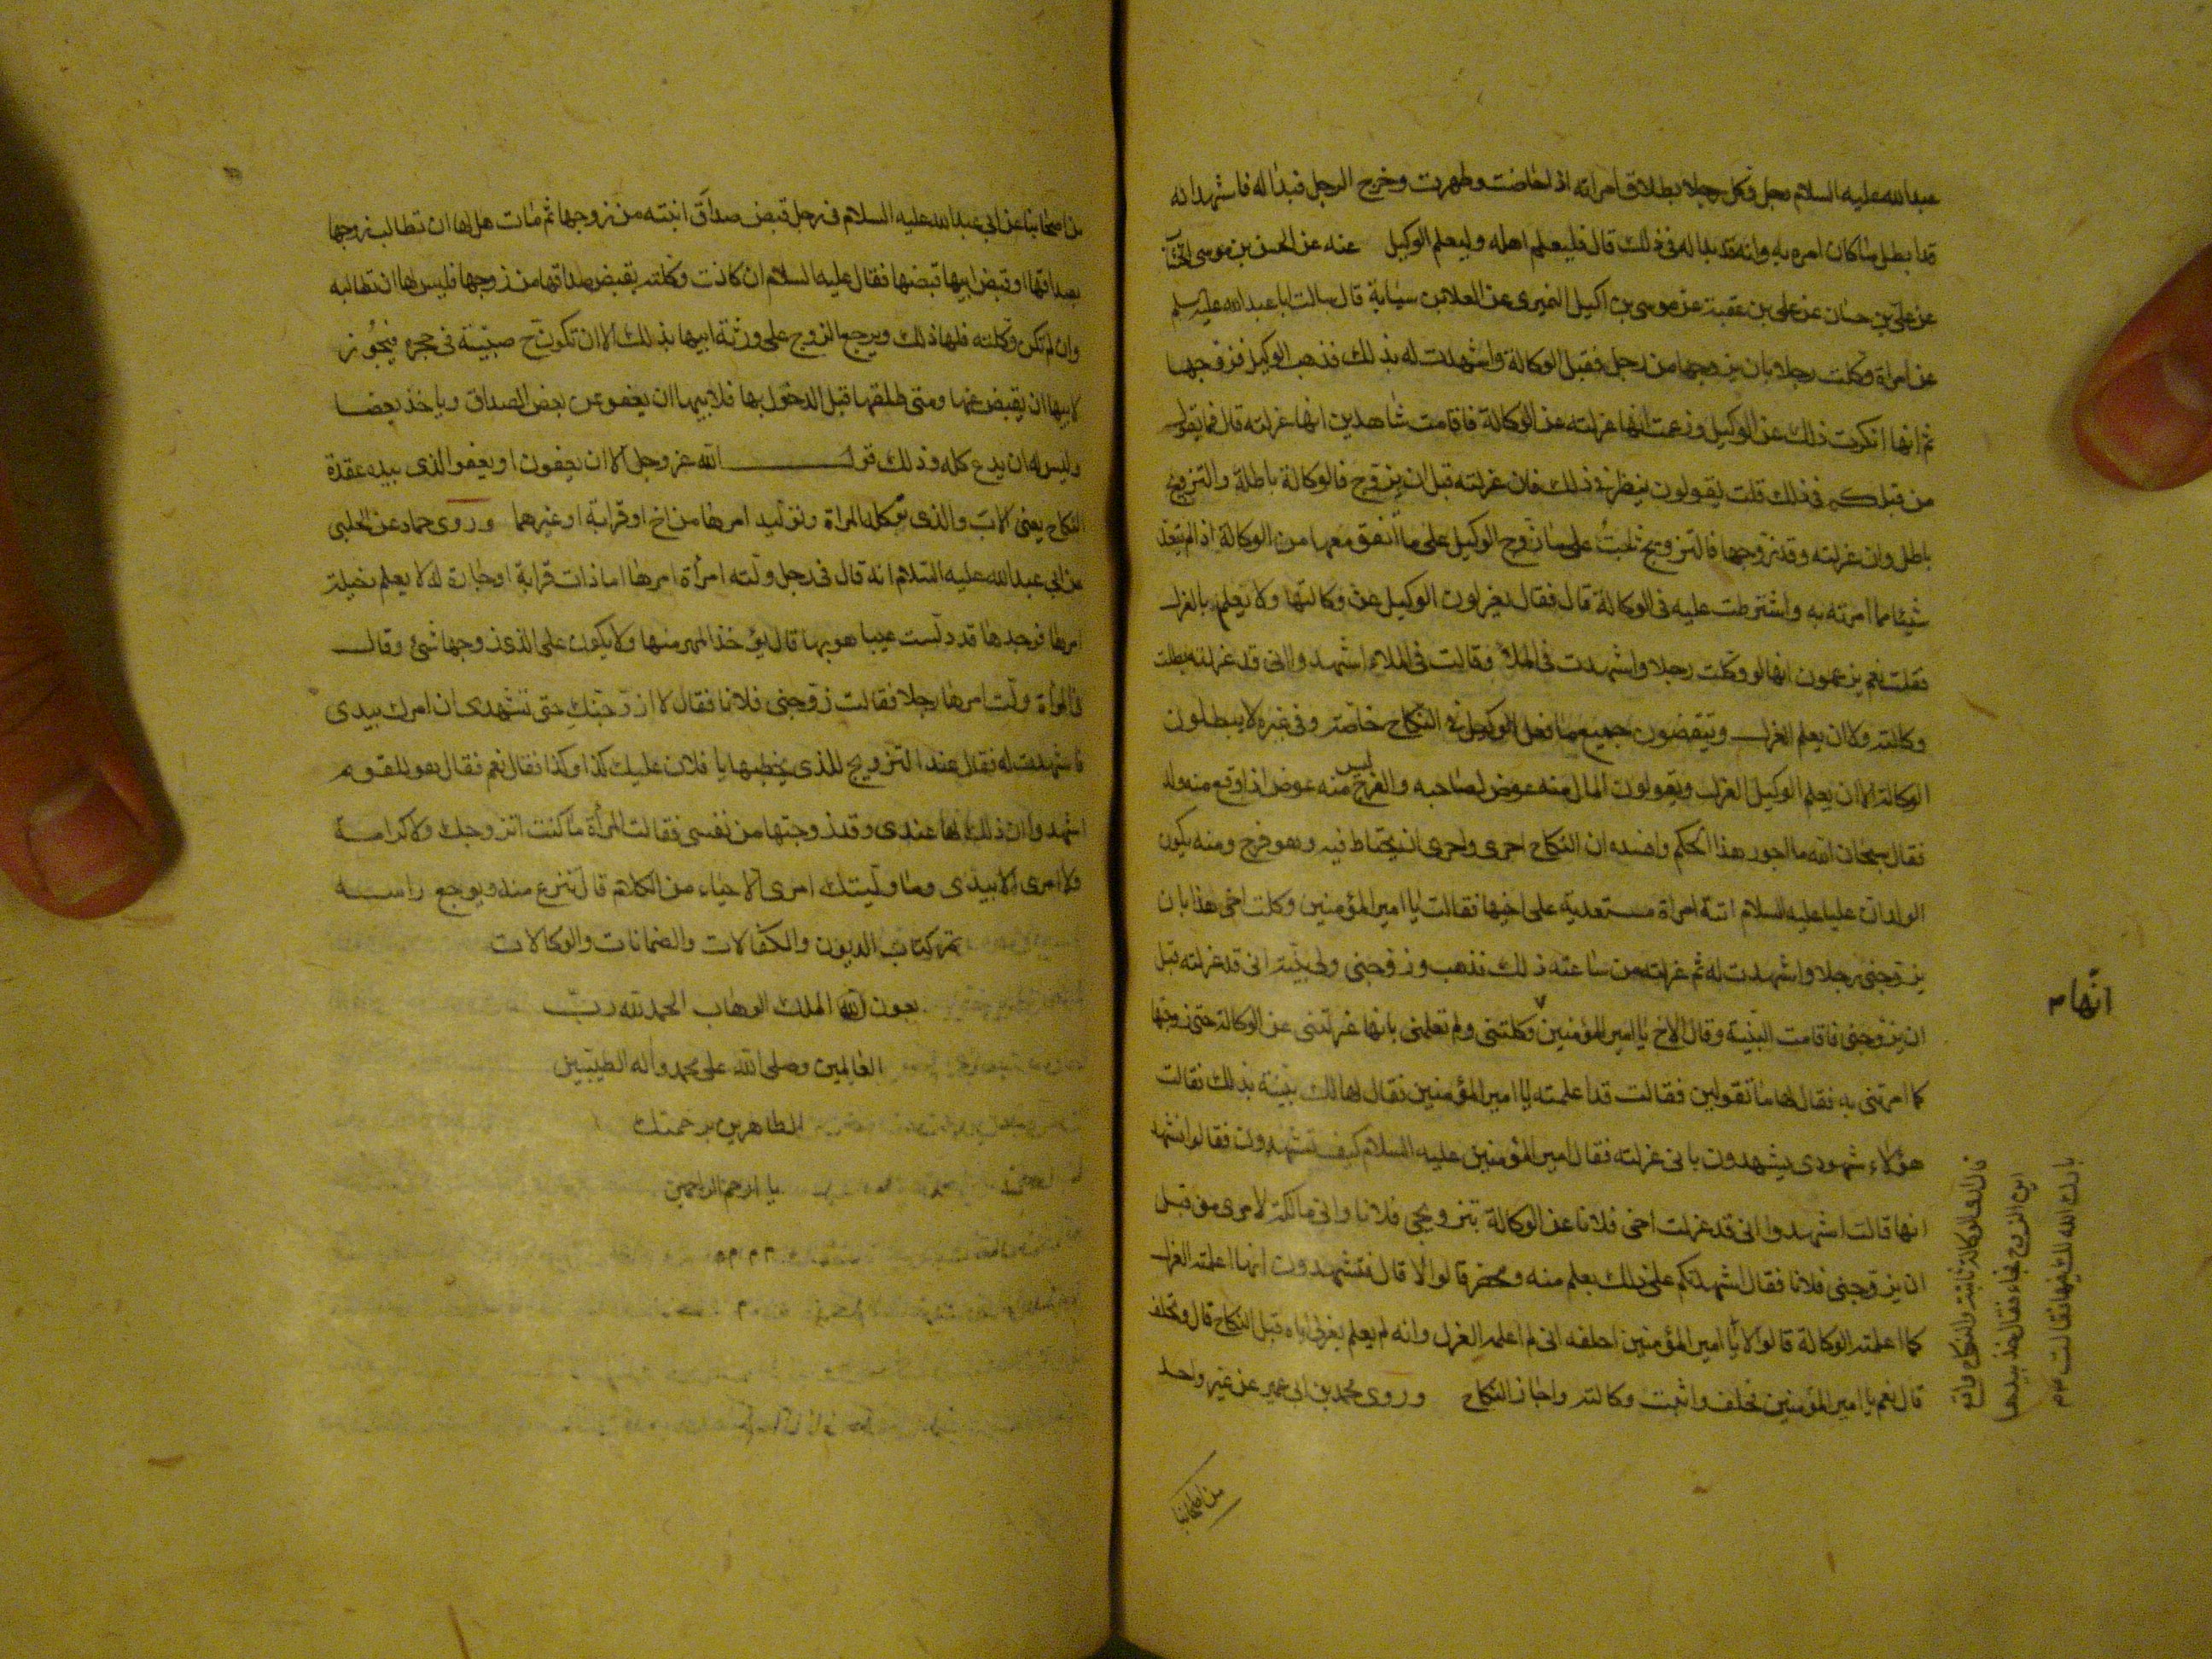 عبدالله عليه السلام رجل وكل رجلا بطلاق امراته اذا حاضت وطهرت وخرج الرجل فبدا له فاشهد انه
قد ابطل ما كان امره به وانه قد بدا له فى ذلك قال فليعلم اهله وليعلم الوكيل عنه عن الحسن بن موسى الخشاب
عن على بن حسان عن على بن عقبة عن موسى بن اكيل النميرى عن العلا بن سيابة قال سالت ابا عبدالله عليه السلم
عن امراة وكلت رجلا بان يزوجها من رجل فقبل الوكالة واشهدت له بذلك فذهب الوكيل فزوجها
ثم انها انكرت ذلك عن الوكيل وزعمت انها عزلته عن الوكالة فاقامت شاهدين انها عزلته قال فما يقول
من قبلكم فى ذلك قلت يقولون ينظر فى ذلك فان عزلته قبل ان يزوج فالوكالة باطلة والتزويج
باطل وان عزلته وقد زوجها فالتزويج ثابت على ما زوج الوكيل على ما اتفق معها من الوكالة اذا لم يتعد
شيئا مما امرته به واشترطت عليه فى الوكالة قال فقال يعزلون الوكيل عن وكالتها ولا يعلم بالعزل
فقلت نعم يزعمون انها لو وكلت رجلا واشهدت فى الملأ وقالت فى الملاء اشهدوا انى قد عزلته بطلت
وكالته ولا ان يعلم العزل وينقضون جميع ما فعل الوكيل فى النكاح خاصة وفى غيره لا يبطلون
الوكالة الا ان يعلم الوكيل العزل ويقولون المال منه عوض لصاحبه والفرج ليس منه عوض اذا وقع منه ولد
فقال سبحان الله ما اجور هذا الحكم وافسده ان النكاح احرى واحرى ان يحتاط فيه وهو فرج ومنه يكون
الولد ان عليا عليه السلام اتته امراة مستعدية على اخيها فقالت يا امير المؤمنين وكلت اخى هذا بان
يزوجنى رجلا واشهدت له ثم عزلته من ساعته ذلك فذهب وزوجنى ولى بينة انى قد عزلته قبل
ان يزوجنى فاقامت البينة وقال الاخ يا امير المؤمنين وكلتنى ولم تعلمنى بانها عزلتنى عن الوكالة حتى زوجتها
كما امرتنى به فقال لها ما تقولين فقالت قد اعلمته يا امير المؤمنين فقال لها لك بينة بذلك فقالت
هؤلاء شهودى يشهدون بانى عزلته فقال امير المؤمنين عليه السلام كيف تشهدون فقالوا نشهد
انها قالت اشهدوا انى قد عزلت اخى فلانا عن الوكالة بتزويجى فلانا وانى مالكة لامرى من قبل
ان يزوجنى فلانا فقال اشهدتكم على ذلك بعلم منه ومحضر قالوا لا قال فتشهدون انها اعلمته العزل
كما اعلمته الوكالة قالوا لا يا امير المؤمنين احلفه انى لم اعلمه العزل وانه لم يعلم بعزلى اياه قبل النكاح قال وتحلف
قال نعم يا امير المؤمنين فحلف واثبت وكالته واجاز النكاح وروى محمد بن ابى عمير عن غير واحد
من اصحابنا
انها م
قال ارى الوكالة ثابتة والنكاح واقع
اين الزوج فجاء فقال خذ بيدها
بارك الله لك فيها فقالت
من اصحابنا عن ابى عبدالله عليه السلام فى رجل قبض صداق ابنته من زوجها ثم مات هل لها ان تطالب زوجها
بصداقها او قبض ابيها قبضها فقال عليه السلام ان كانت وكلته بقبض صداقها من زوجها فليس لها ان تطالبه
وان لم تكن وكلته فلها ذلك ويرجع الزوج على ورثة ابيها بذلك الا ان تكون ح صبيّة فى حجره فيجوز
لابيها ان يقبض عنها ومتى طلقها قبل الدخول بها فلابيها ان يعفو عن بعض الصداق وياخذ بعضا
وليس له ان يدع كله وذلك قول الله عز وجل الا ان يعفون او يعفو الذى بيده عقدة
النكاح يعنى الاب والذى توكله المراة وتوليه امرها من اخ او قرابة او غيرهما وروى حماد عن الحلبى
عن ابى عبدالله عليه السلام انه قال فى رجل ولته امرأة امرها اما ذات قرابة او جارة له لا يعلم دخيلة
امرها فوجدها قد دلست عيبا هو بها قال يؤخذ المهر منها ولا يكون على الذى زوجها شئ وقال
فى امرأة ولت امرها رجلا فقالت زوجنى فلانا فقال لا ازوجنك حتى تشهدى ان امرك بيدى
فاشهدت له فقال عند التزويج للذى يخطبها يا فلان عليك كذا وكذا فقال نعم فقال هو للقوم
اشهدوا ان ذلك لها عندى وقد زوجتها من نفسى فقالت المرأة ما كنت اتزوجك ولا كرامة
ولا امرى الا بيدى وما وليتك امرى الا حياء من الكلام قال تنزع منه ويوجع راسه
تم كتاب الديون والكفالات والضمانات والوكالات
بعون الله الملك الوهاب الحمد لله رب
العالمين وصلى الله على محمد واله الطيبين
الطاهرين برحمتك
يا ارحم الراحمين